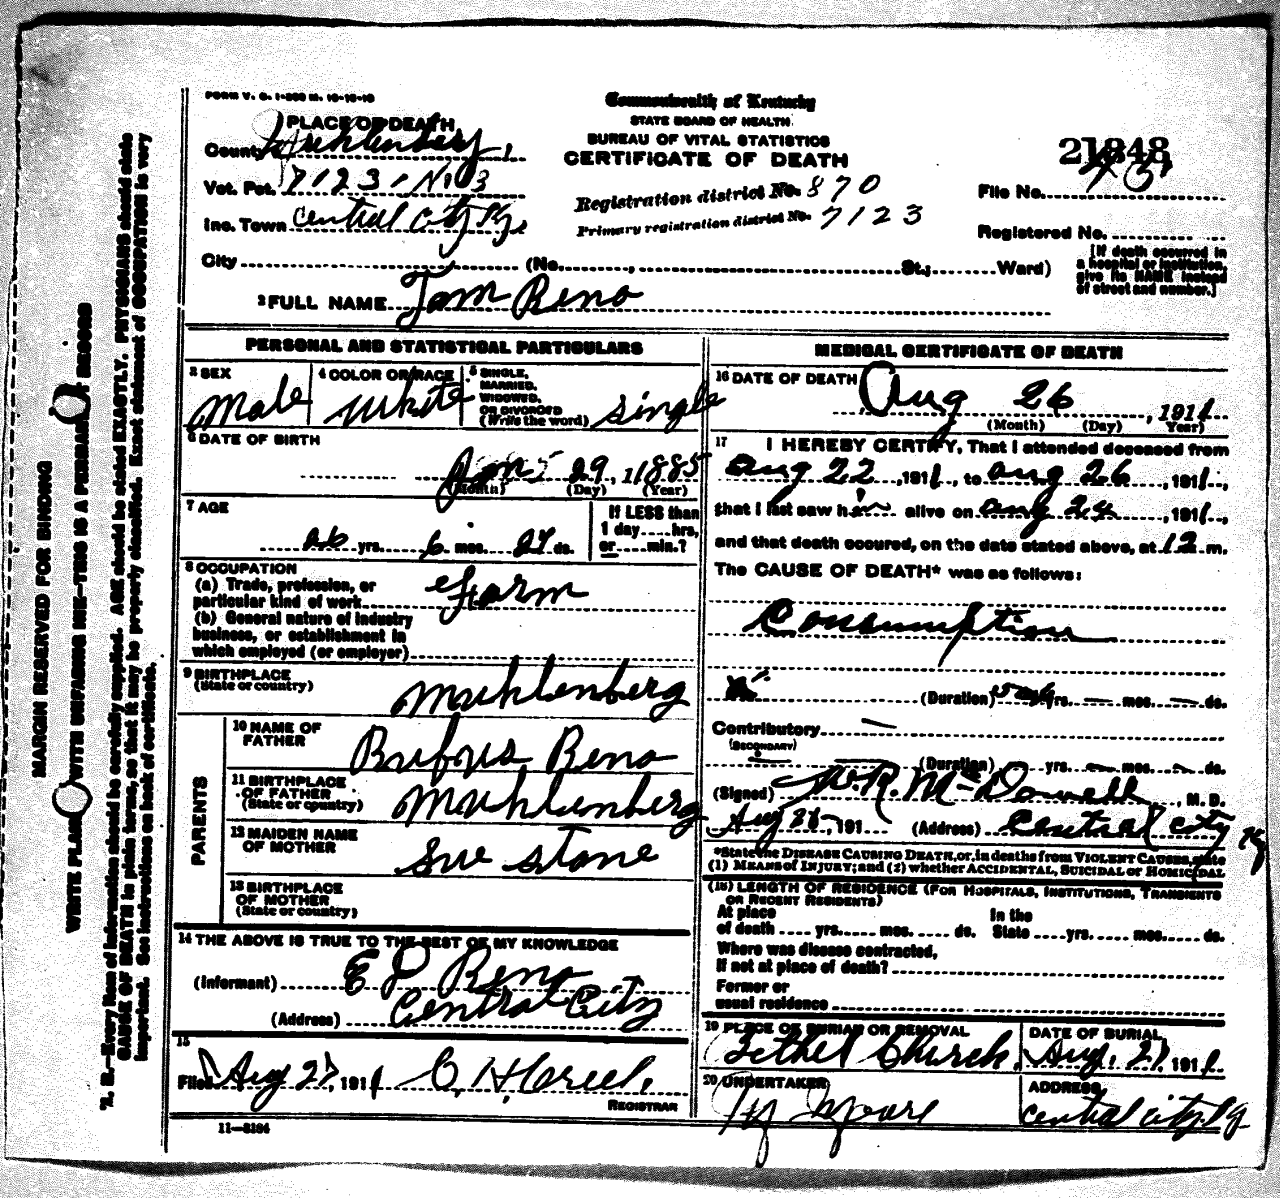 FORM V. S. 1-200 M. 10-18-10
Commonwealth of Kentucky
STATE BOARD OF HEALTH
BUREAU OF VITAL STATISTICS
CERTIFICATE OF DEATH
PLACE OF DEATH
County Muhlenberg,
Vot. Pct. 7123, No 3
Inc. Town Central City Ky.
City (No. , St.; Ward)
Registration district No. 870
Primary registration district No. 7123
21848
File No.
Registered No.
[If death occurred in
a hospital or institution,
give its NAME instead
of street and number.]
2 FULL NAME Tom Reno
PERSONAL AND STATISTICAL PARTICULARS
3 SEX
Male
4 COLOR OR RACE
White
5 SINGLE,
MARRIED,
WIDOWED,
OR DIVORCED
(Write the word)
single
6 DATE OF BIRTH
Jan 29, 1885
(Month) (Day) (Year)
7 AGE
26 yrs. 6 mos. 27 ds.
If LESS than
1 day hrs,
or min.?
8 OCCUPATION
(a) Trade, profession, or
particular kind of work Farm
(b) General nature of industry
business, or establishment in
which employed (or employer)
9 BIRTHPLACE
(State or country)
Muhlenberg
PARENTS
10 NAME OF
FATHER
Rufus Reno
11 BIRTHPLACE
OF FATHER
(State or country)
Muhlenberg
12 MAIDEN NAME
OF MOTHER
Sue Stone
13 BIRTHPLACE
OF MOTHER
(State or country)
14 THE ABOVE IS TRUE TO THE BEST OF MY KNOWLEDGE
(Informant) E P Reno
(Address) Central City
15
Filed Aug 27, 1911
REGISTRAR
11—3184
MEDICAL CERTIFICATE OF DEATH
16 DATE OF DEATH
Aug 26, 1911
(Month) (Day) Year)
17 I HEREBY CERTIFY, That I attended deceased from
Aug 22, 1911, to Aug 26, 1911,
that I last saw him alive on Aug 24, 1911,
and that death occured, on the date stated above, at 12 m.
The CAUSE OF DEATH* was as follows:
Consumption
(Duration) yrs. — mos. — ds.
Contributory —
(SECONDARY)
(Duration) yrs. — mos. — ds.
(Signed) W. R. McDowell, M. D.
Aug 26, 191 (Address) Central City Ky
*State the DISEASE CAUSING DEATH, or, in deaths from VIOLENT CAUSES, state
(1) MEANS of INJURY; and (2) whether ACCIDENTAL, SUICIDAL or HOMICIDAL
(18) LENGTH OF RESIDENCE (FOR HOSPITALS, INSTITUTIONS, TRANSIENTS
OR RECENT RESIDENTS)
At place
of death yrs. mos. ds.
In the
State yrs. mos. ds.
Where was disease contracted,
If not at place of death?
Former or
usual residence
19 PLACE OF BURIAL OR REMOVAL
Bethel Church.
DATE OF BURIAL
Aug. 27, 1911
20 UNDERTAKER
Moore
ADDRESS
Central City, Ky
MARGIN RESERVED FOR BINDING
WRITE PLAINLY WITH UNFADING INK—THIS IS A PERMANENT RECORD
N. B.—Every item of information should be carefully supplied. AGE should be stated EXACTLY. PHYSICIANS should state
CAUSE OF DEATH in plain terms, so that it may be properly classified. Exact statement of OCCUPATION is very
important. See instructions on back of certificate.